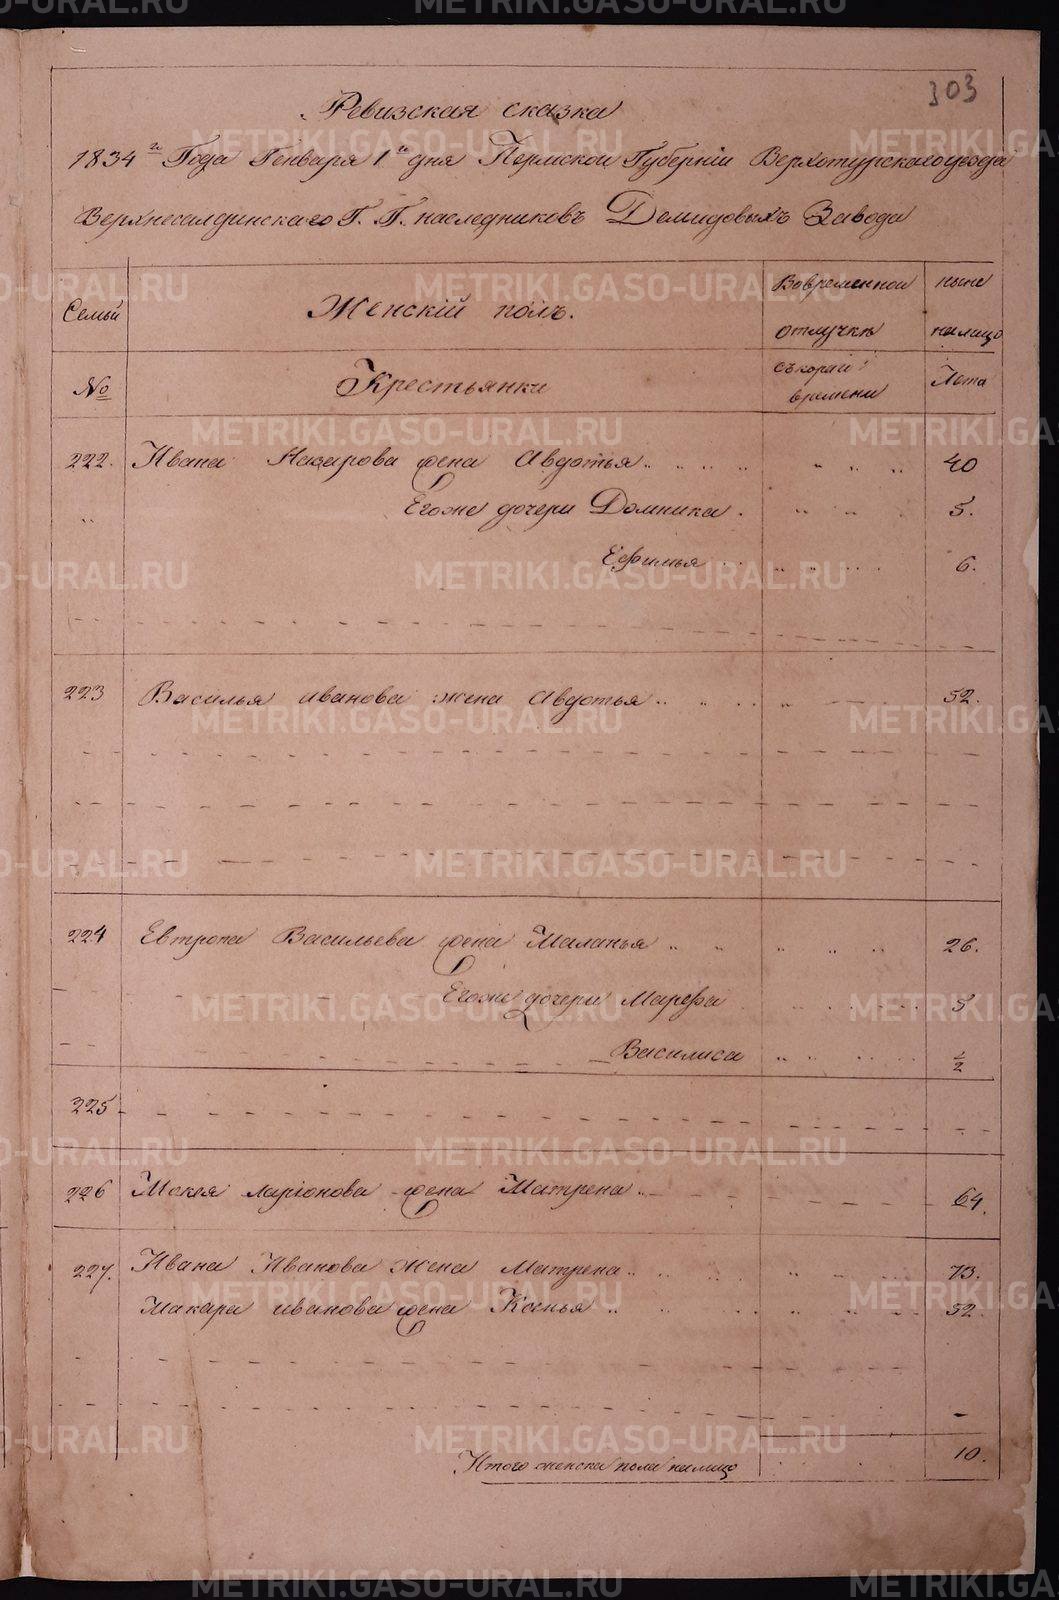 303
Ревизская сказка
1834го Года Генваря 1го дня Пермской Губерніи Верхотурского уезда
Верхнесалдинскаго Г. Г. наследниковъ Демидовыхъ Завода
Семьи
Женскій полъ.
Вовременной отлучкѣ
ныне налицо
№
Крестьянки
съ корой времени
Лета
222. Ивана Назарова жена Авдотья 40
Егоже дочери Домника 5.
Ефимья 6.
223 Василья иванова жена Авдотья 52.
224 Евтропа Васильева жена Маланья 26.
Егоже дочери Марфа 3
Василиса 1/2
225
226 Мокея ларіонова жена Матрена 64.
227. Ивана Иванова жена Матрена 73.
Макара иванова жена Ксенья 52.
Итого женска пола налицо 10.
METRIKI.GASO-URAL.RU